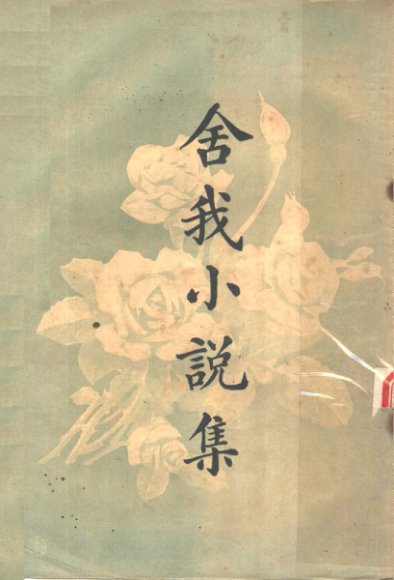 舍我小説集